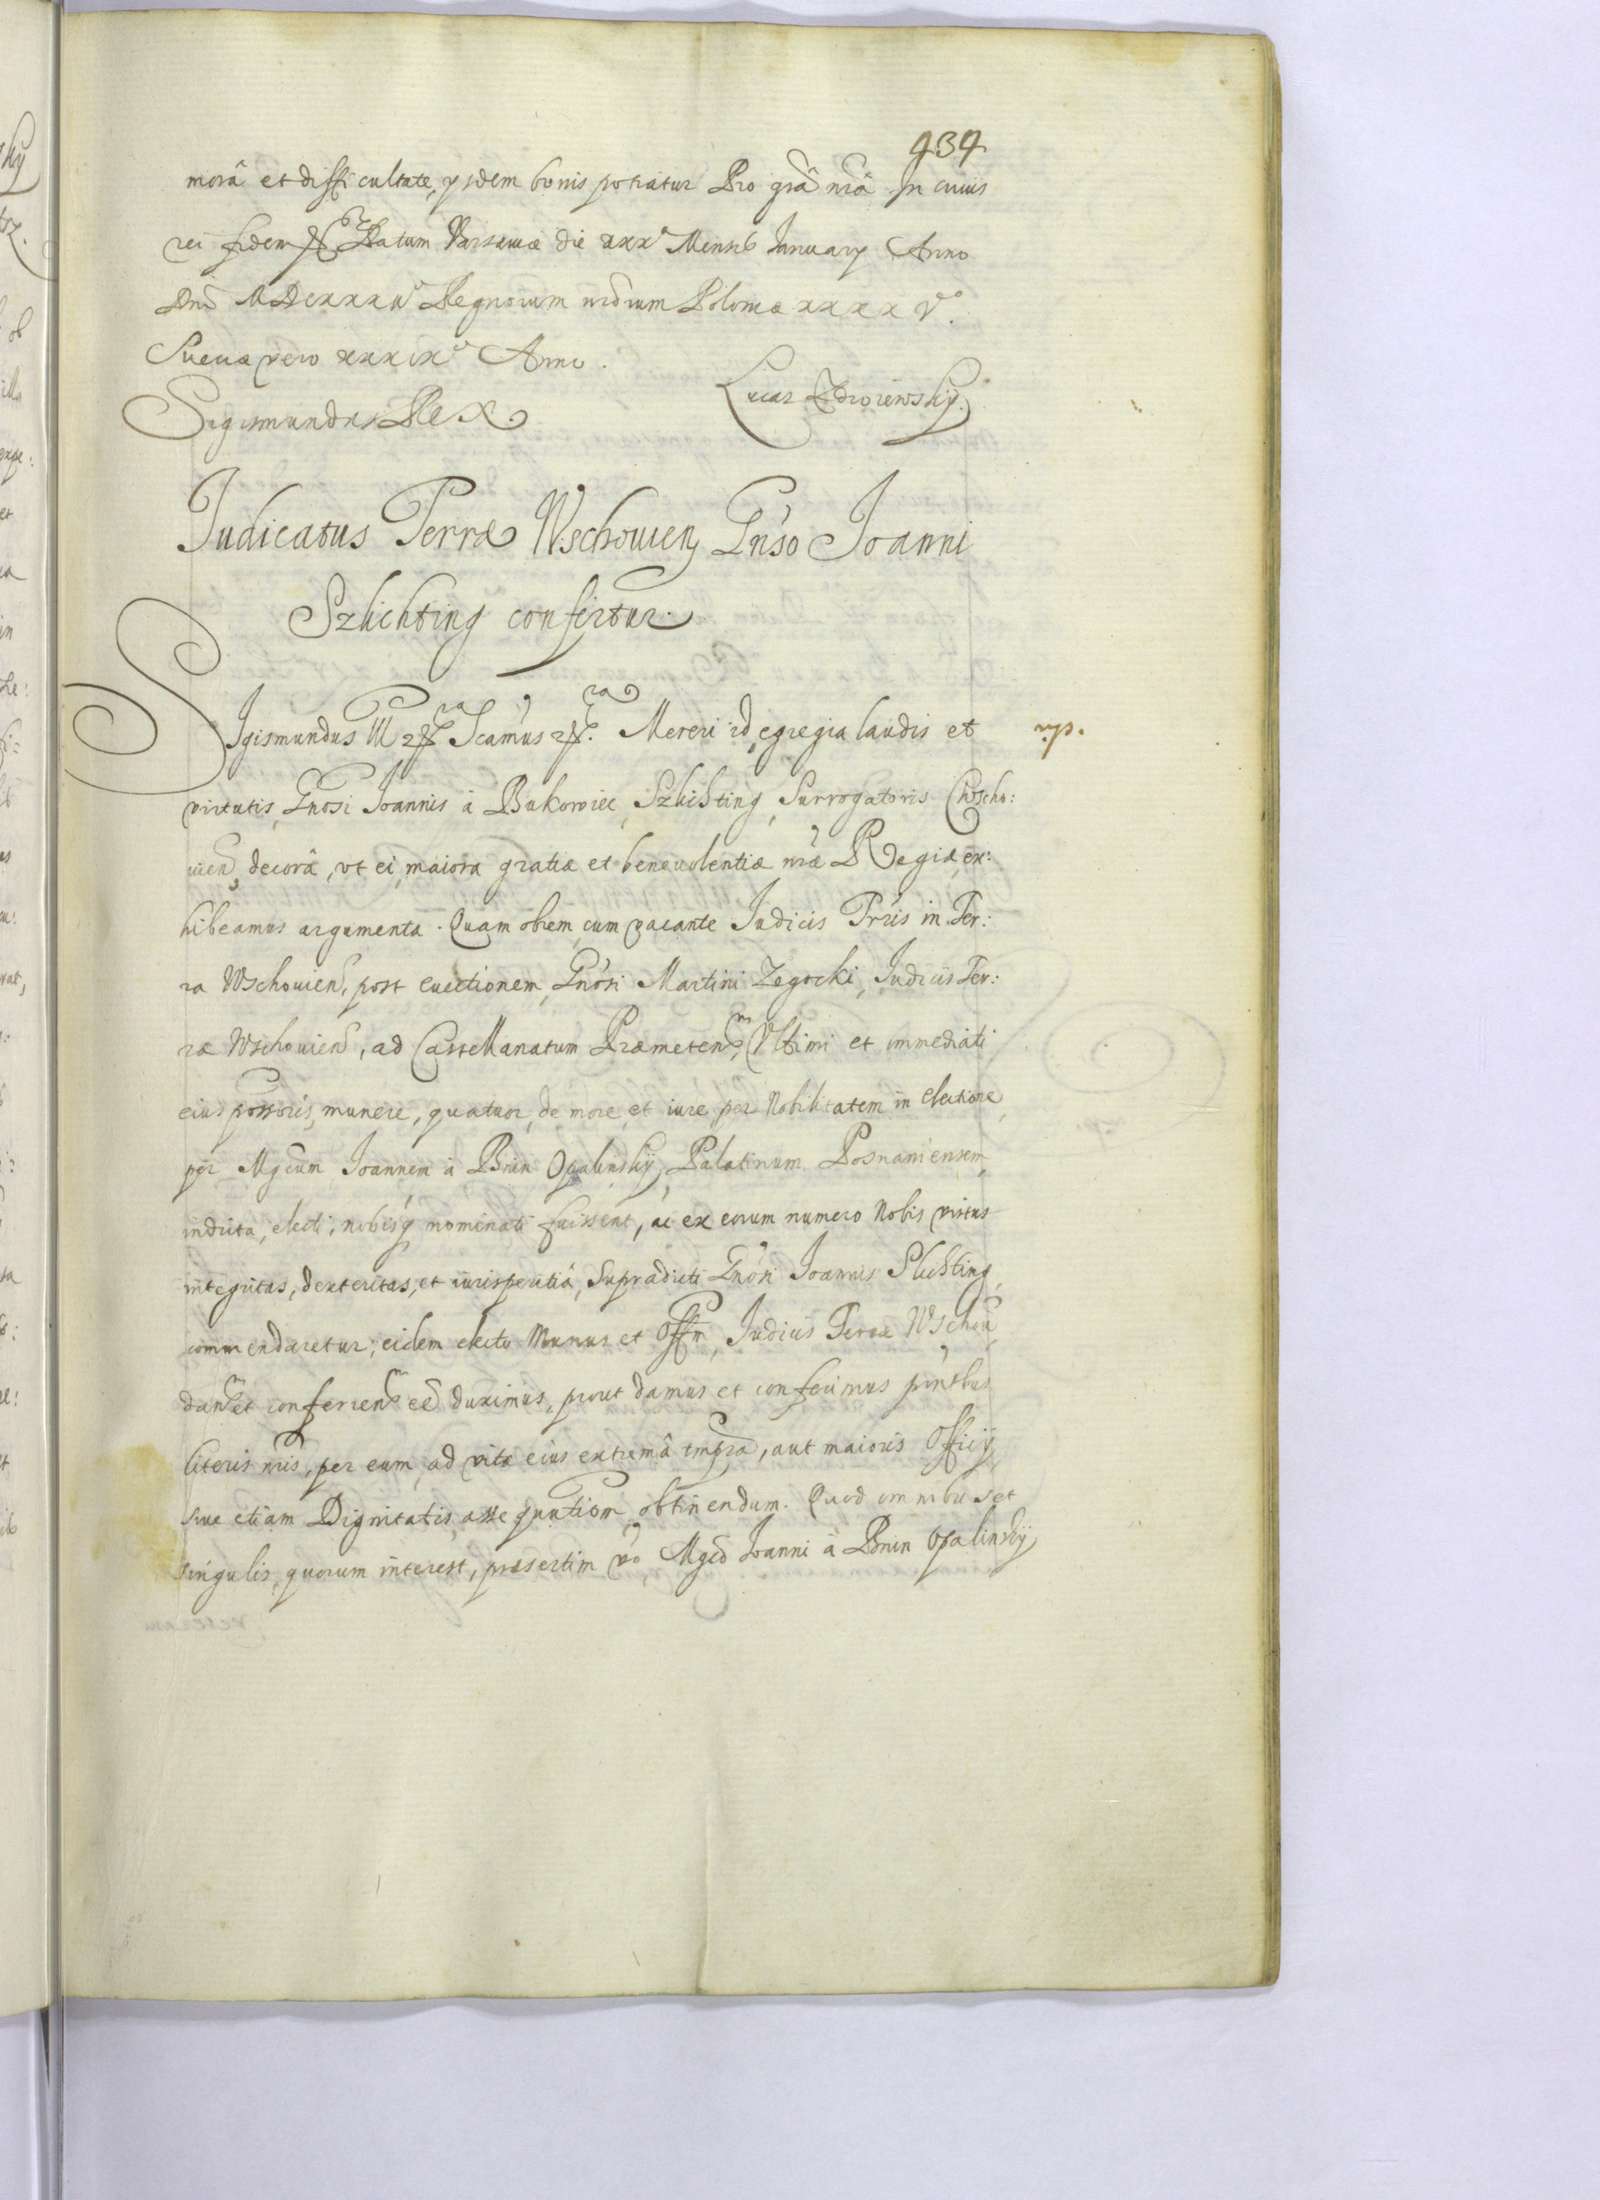 434
morâ et difficultate, ysdem bonis potiatur Pro grâ nrâ In cuius
rei fidem etz Datum Varsauiæ die xxxa Mensis Ianuary Anno
Dni MDCXXXIIo Regnorum nrorum Poloniæ xxxx Vo.
Sueciæ vero xxxixo Anno.
Sigismundus Rex
Lucas Zdroiewsky.
Judicatus Terræ Wschouien Gnso Joanni
Szlichting confertur.
SIgismundus III etc Scamus etc. Mereri id, egregia laudis et
rp.
virtutis, Gnosi Joannis à Bukowiec, Szlichting, Surrogatoris Wscho:
uien, decorâ, vt ei, maiora gratiæ et beneuolentiæ nræ Regiæ, ex:
hibeamus argumenta. Quam obrem, cum vacante Judicis Trris in Ter:
ra Wschouien, post euectionem, Gnosi Martini Zegocki, Judicis Ter:
ræ Wschouien, ad Castellanatum Præmeten, Vltimi et immediati
eius possoris, munere, quatuor, de more et iure per Nobilitatem in electione
per Mgcum Joannem à Bnin Opalinsky, Palatinum Posnaniensem,
indicta, electi, nobisq nominati fuissent, ac ex eorum numero Nobis virtus
integritas, dexteritas, et iurisperitia, Supradicti Gnosi Joannis Slichting,
commendaretur; eidem electo Munus et Offm, Judicis Terræ Wschou
dan et conferien eê duximus, prout damus et conferimus pntbus
literis nris, per eum, ad vitæ eius extrema tmpra, aut maioris Officij,
siue etiam Dignitatis assequutiom, obtinendum. Quod omnibus et
singulis, quorum interest, præsertim vo, Mgco Joanni à Bnin Opalinsky